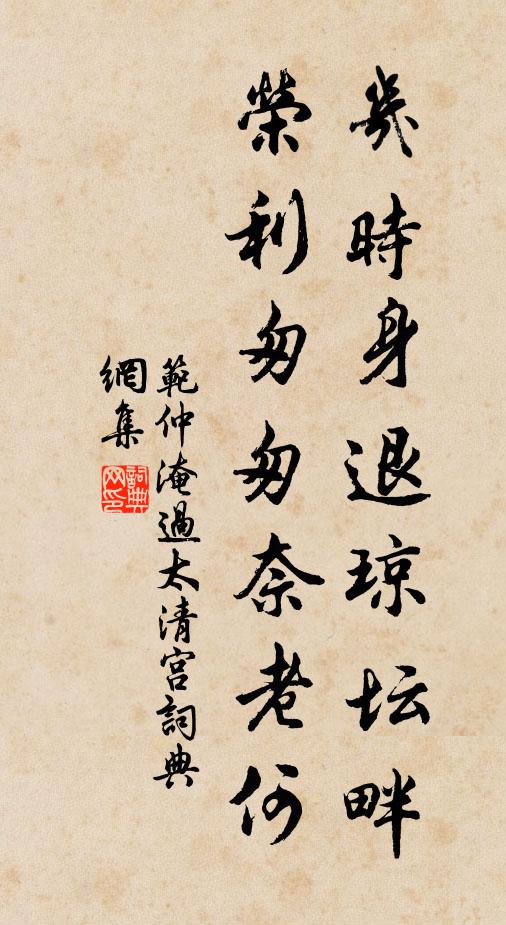 幾時身退琼坛畔
榮利匆匆奈老何
範仲淹過太清宮詞典
網集
詞典
网印